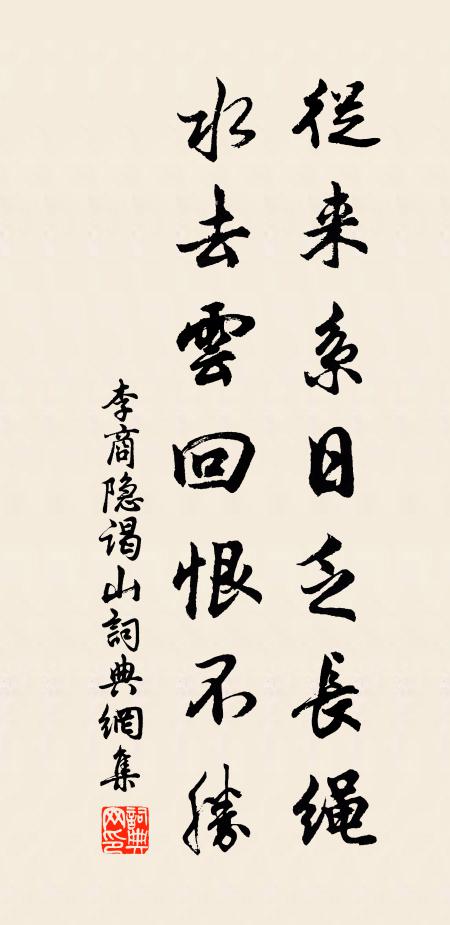 從来系日乏長绳
水去雲回恨不勝
李商隐谒山詞典網集
詞典网印